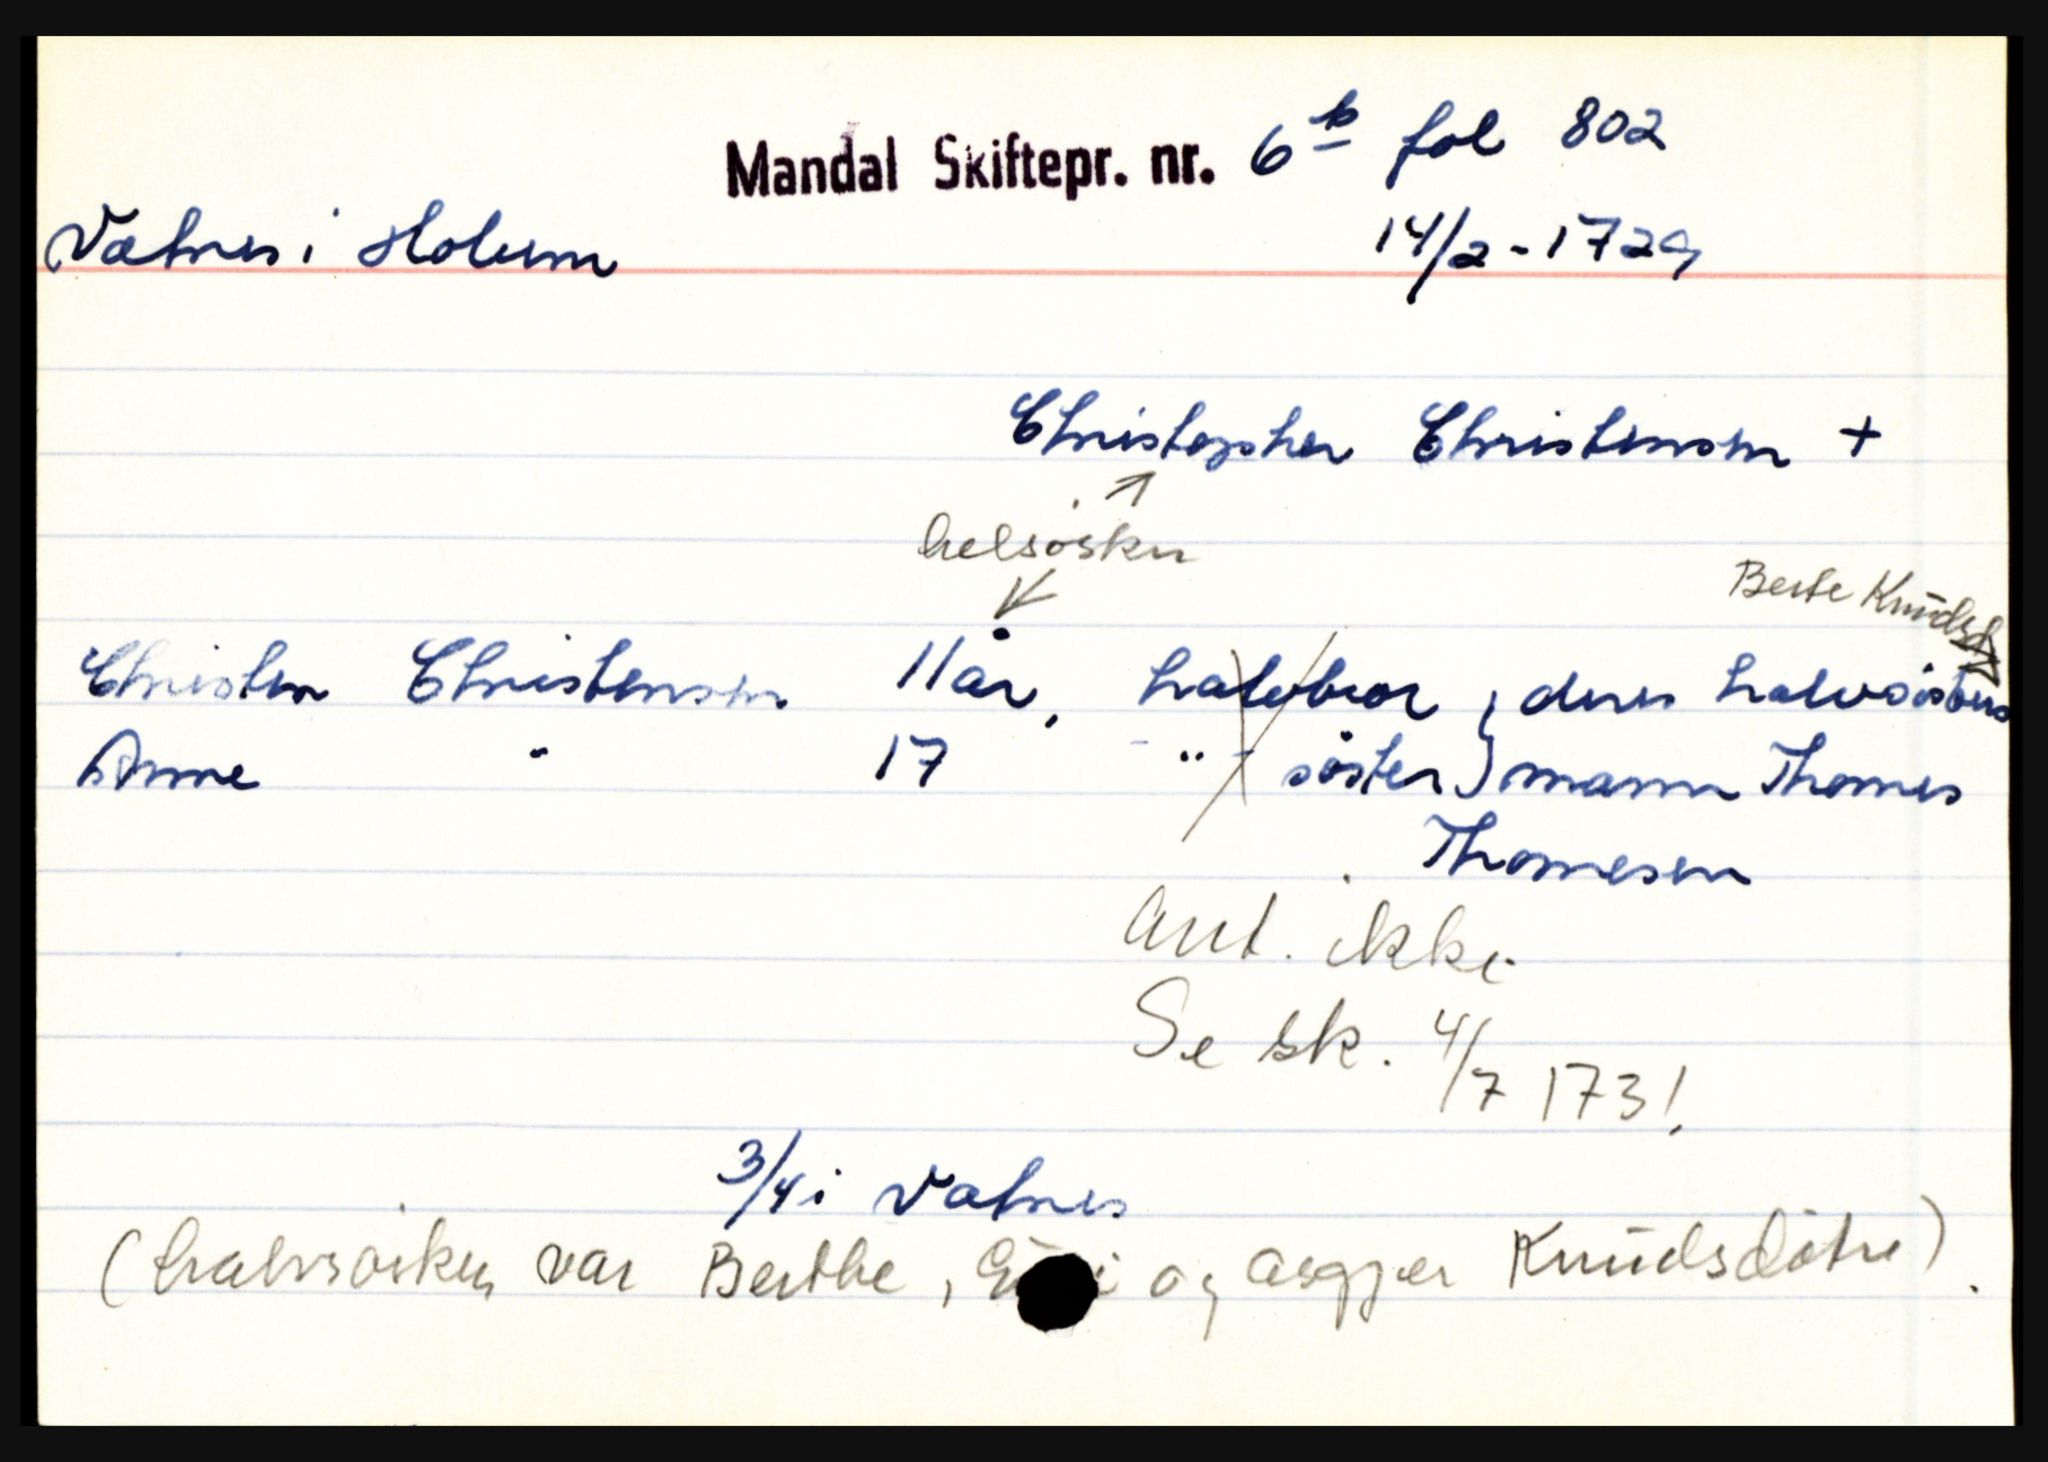 Mandal Skiftepr. nr. 6b fol 802
Vatnes i Holum 14/2-1729
Christopher Christensen +
helsøsken
Berte Knudsd
Christen Christensen 11 år, halvbror } deres halvsøsters
Anne " 17 - " - søster } mann Thomes
Thomesen
Ant. ikke
Se sk. 4/7 1731
3/4 i Vatnes
(halvsøsken var Berthe, og Asgjer Knudsdøtre).